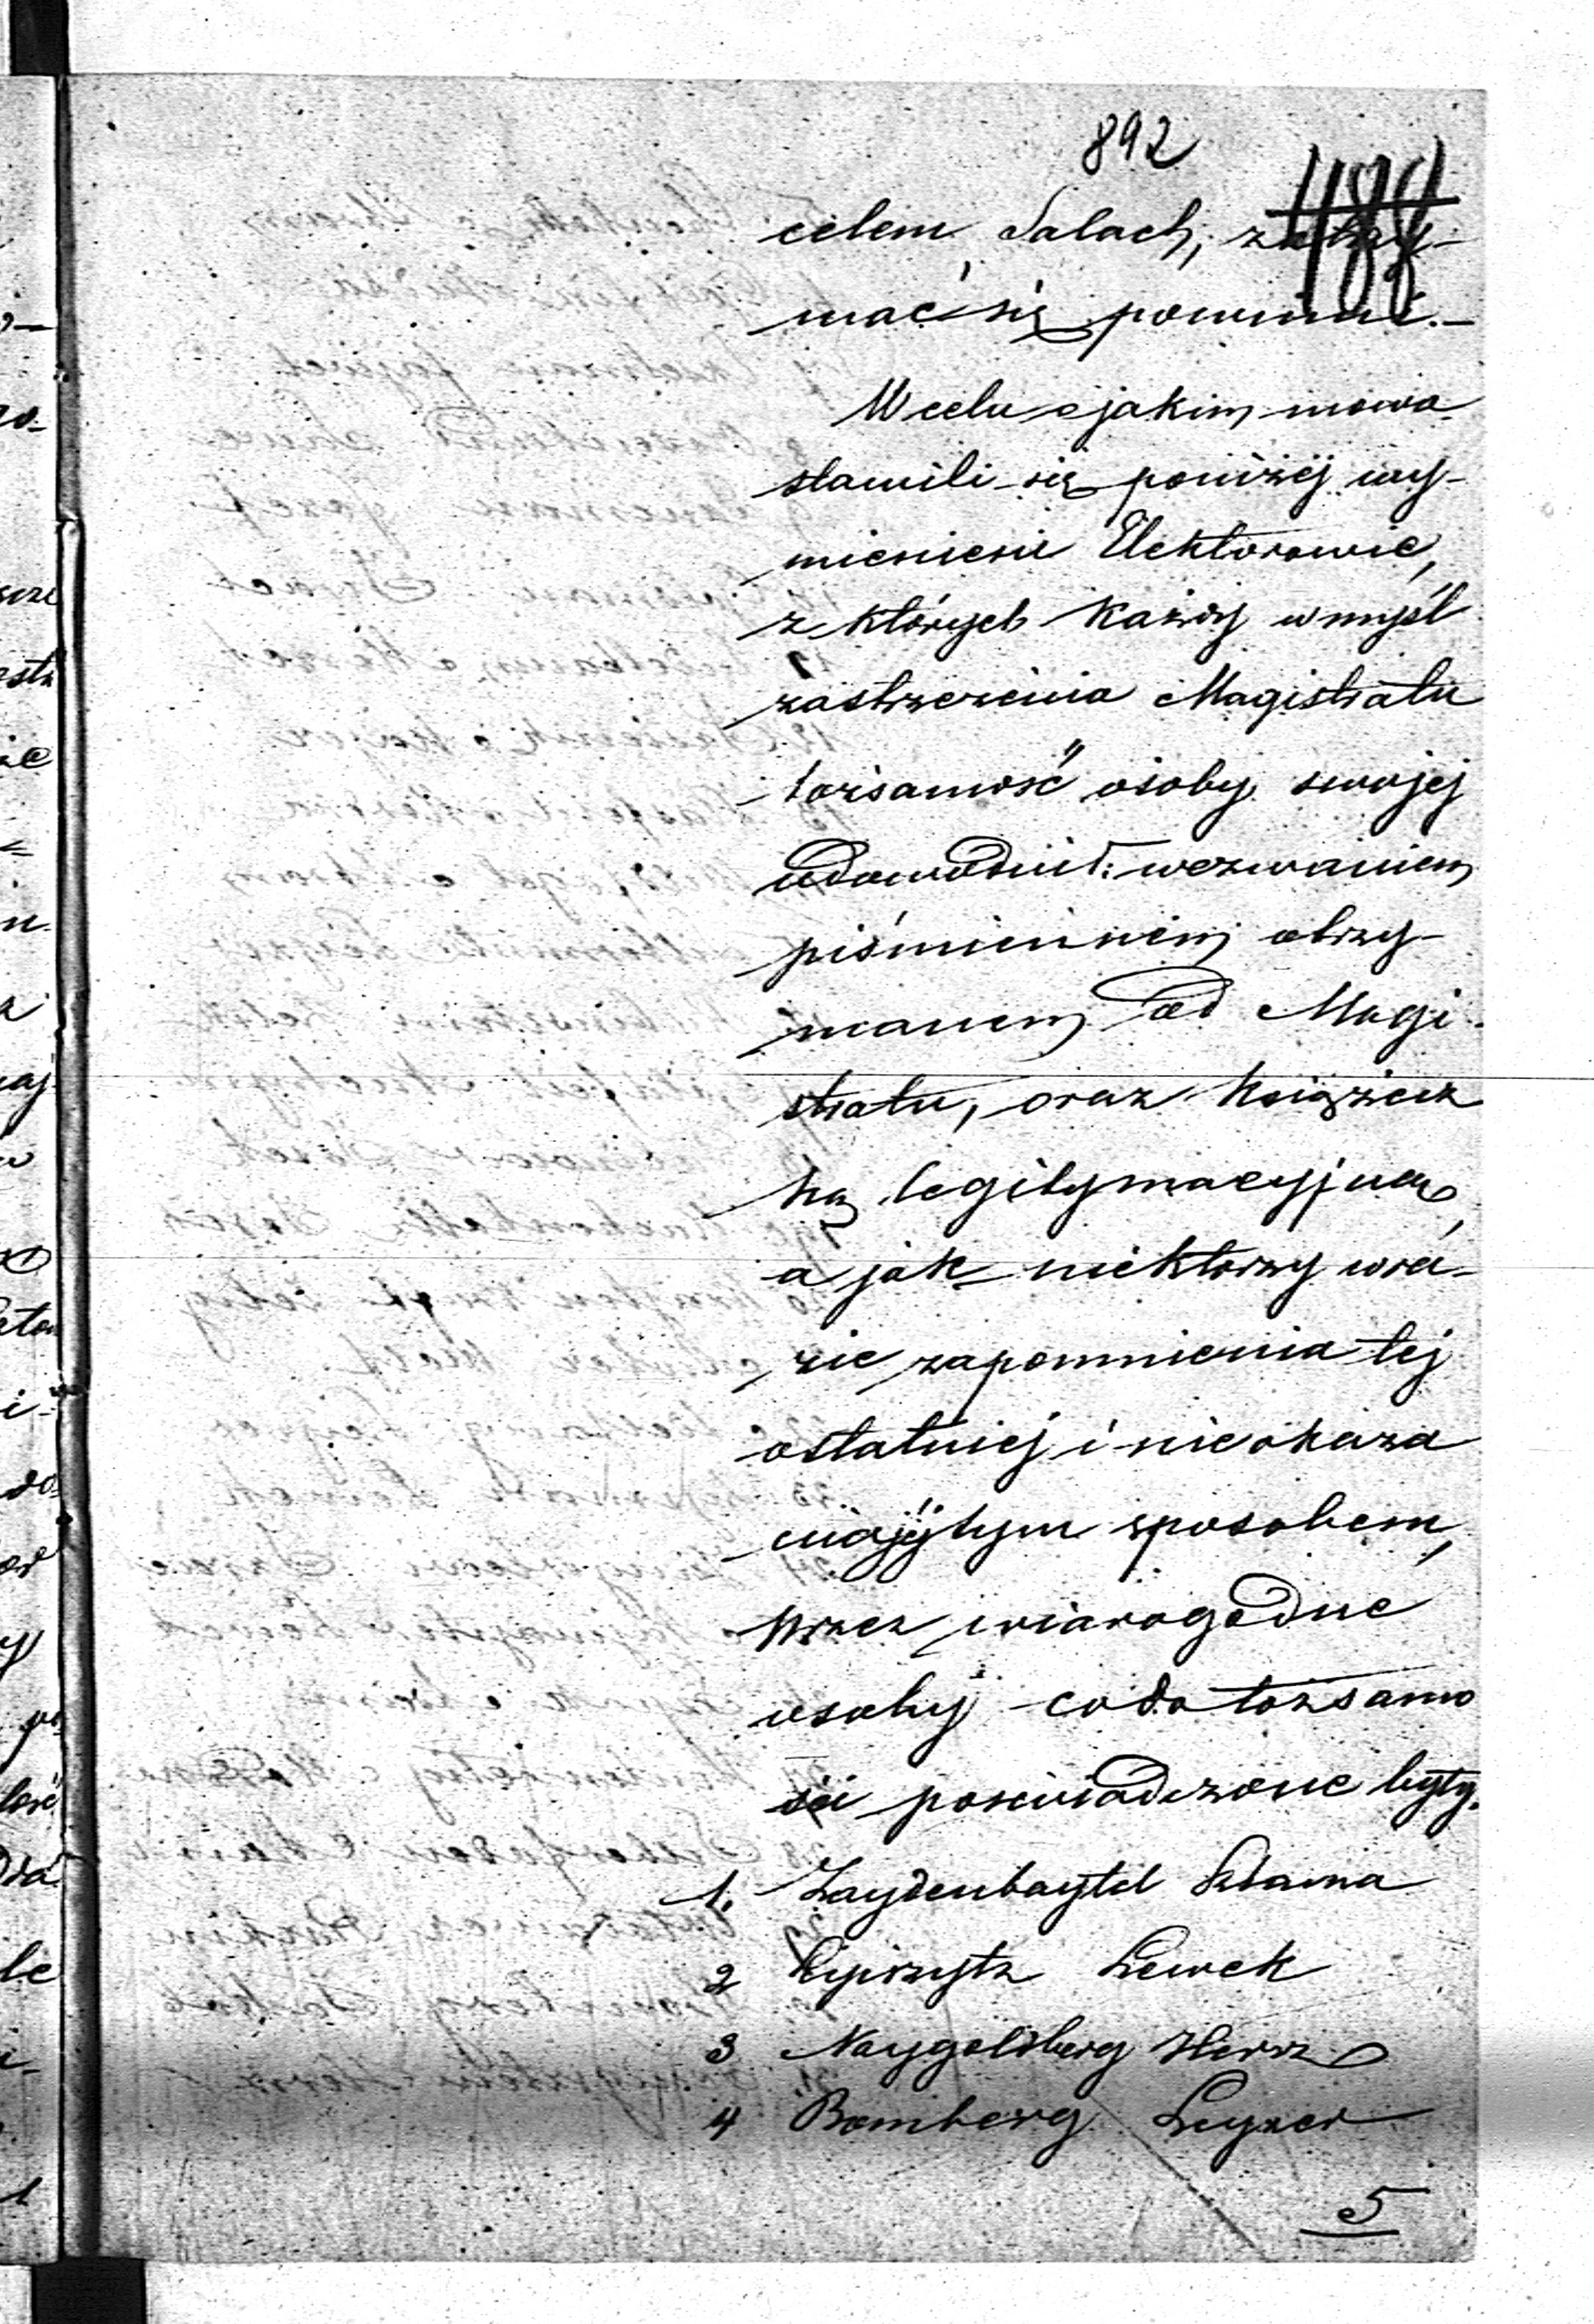 892
488
celem Salach, zatrzy-
mać się powinni.-
W celu o jakim mowa
stawili się poniżej wy-
mienieni Elektorowie,
z których każdy w myśl
zastrzeżenia Magistratu
tożsamość osoby swojej
udowodnił: wezwaniem
piśmiennem otrzy-
manem od Magi-
stratu, oraz książecz
ką legitymacyjną,
a jak niektórzy wra-
zie zapomnienia tej
ostatniej i nieokaza
nia jej tym sposobem,
przez wiarogodne
osoby co do tożsamo
ści poświadczone były.
1. Zaydenbaytel Szlama
2 Lewek
3 Naygoldberg Herz
4 Bomberg Leyzer
5